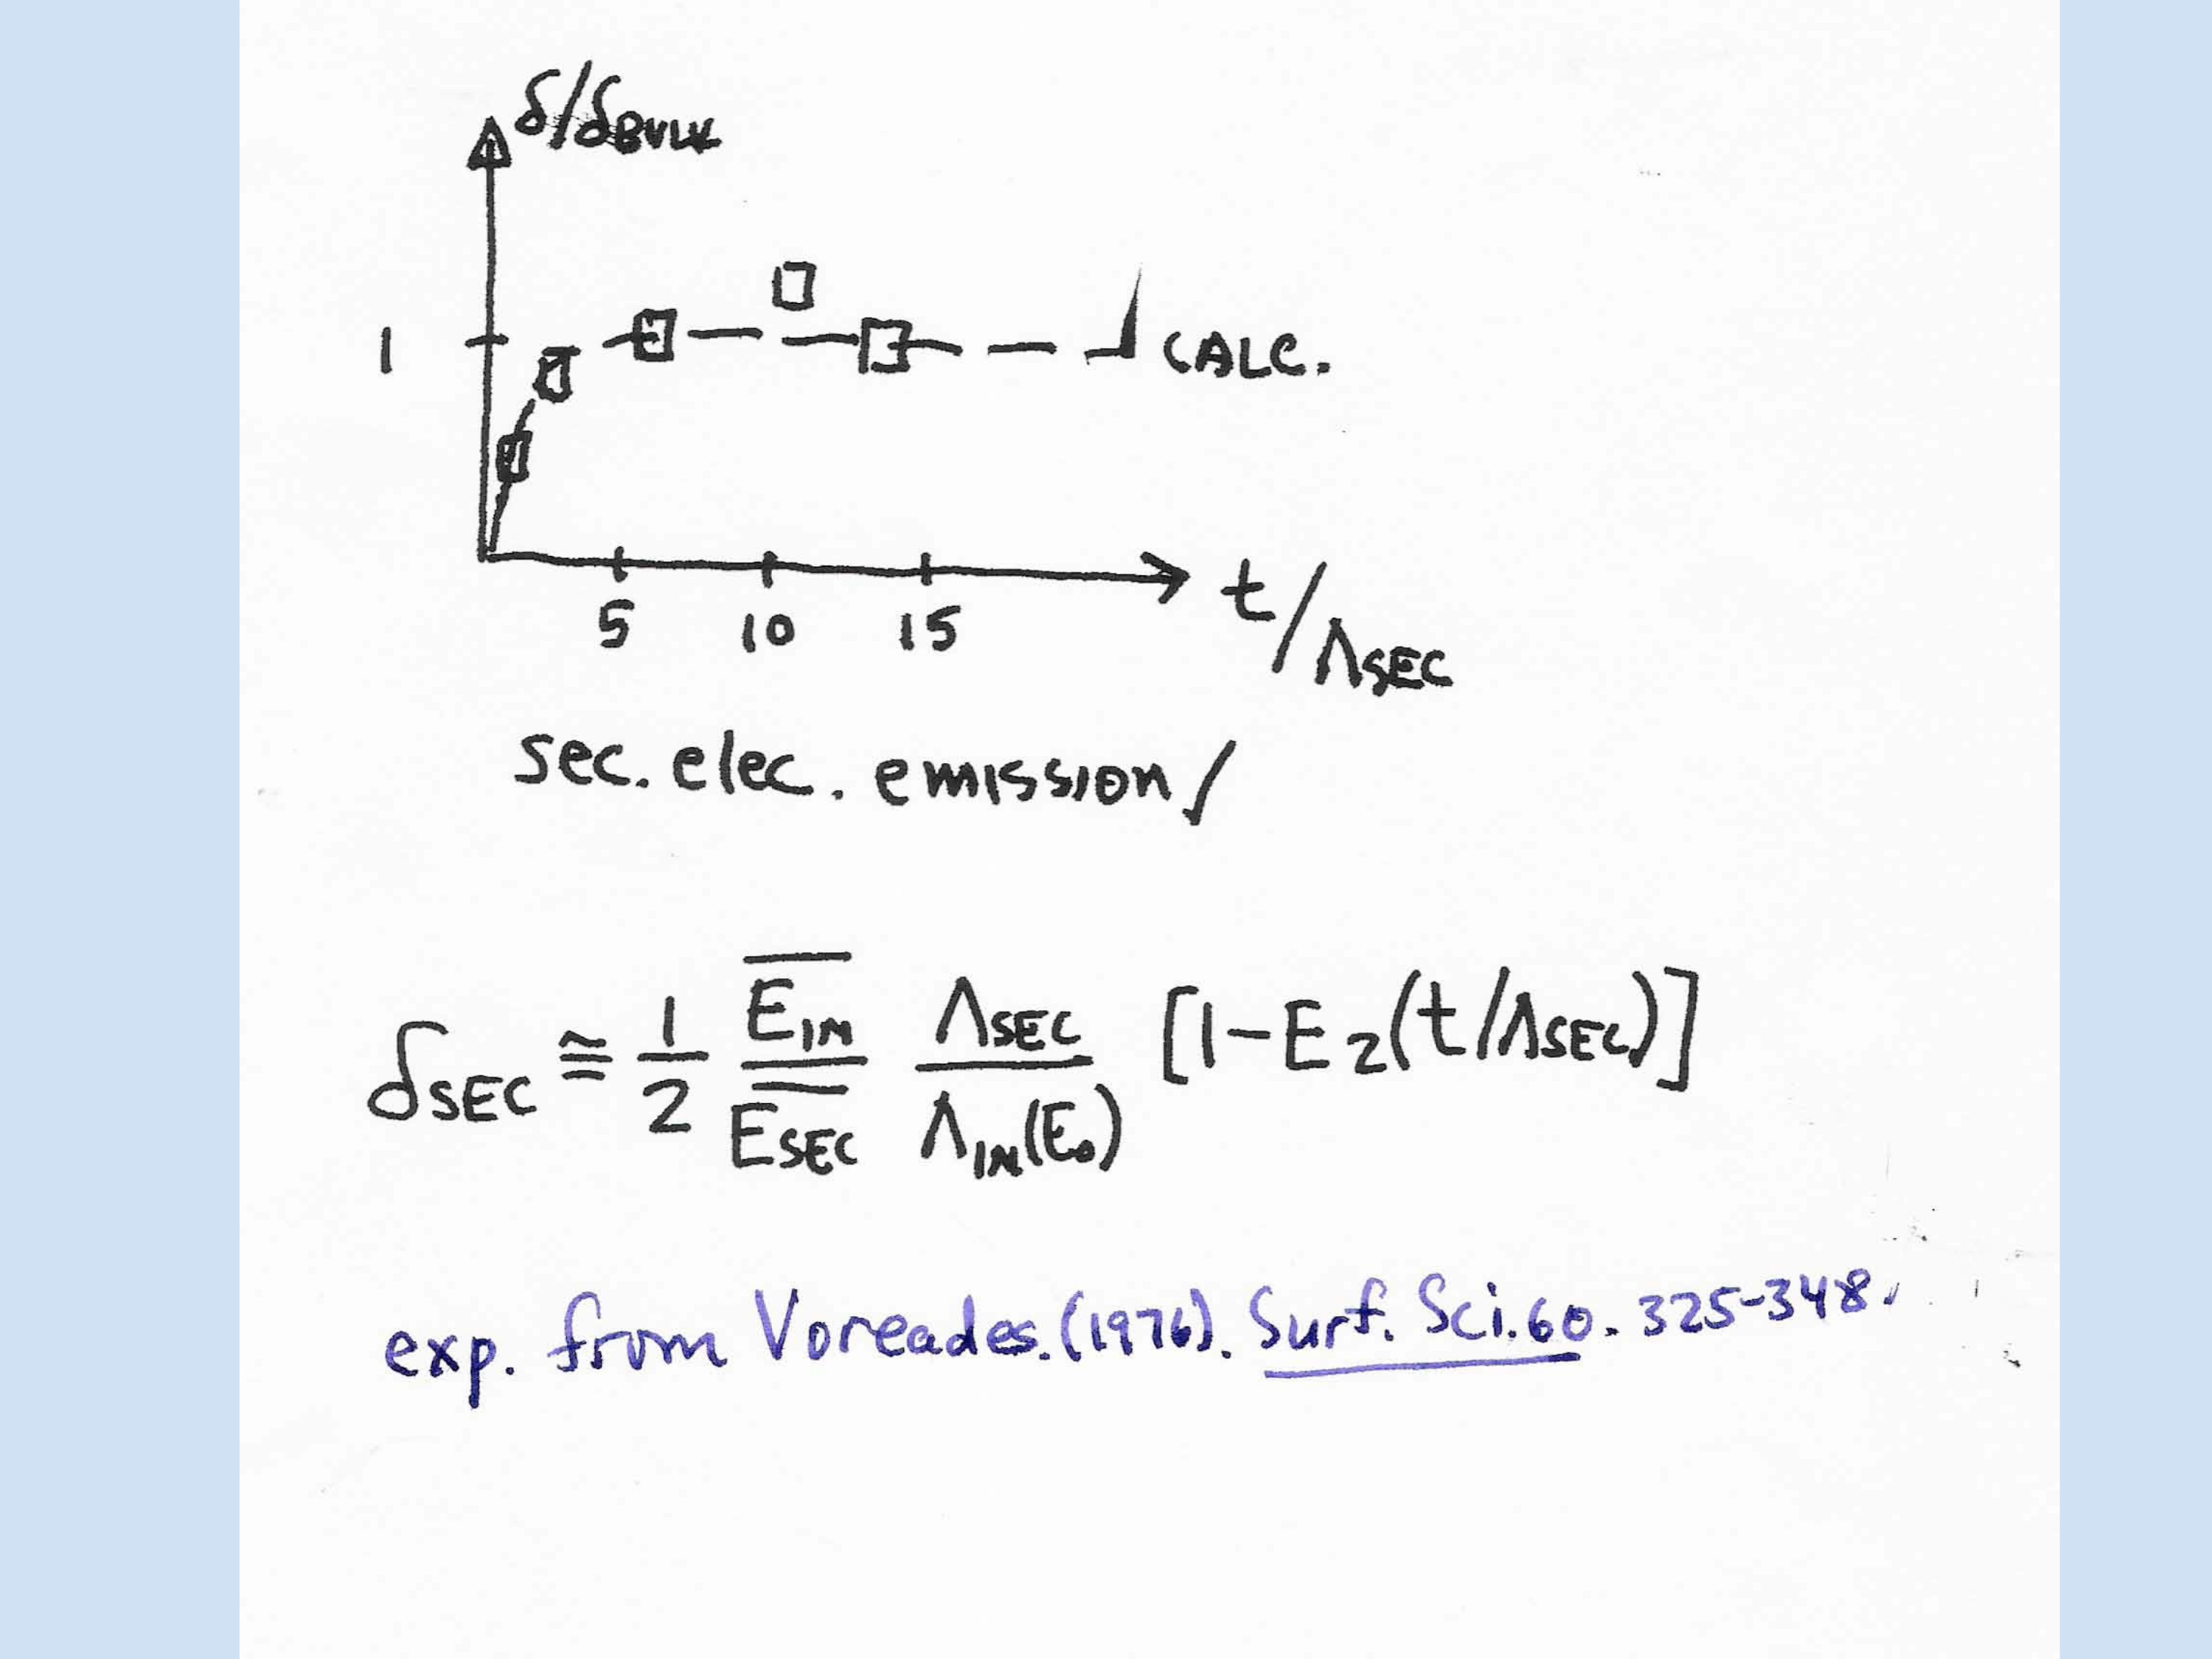 δ/δBULK
1
CALC.
5 10 15
t/ΛSEC
sec. elec. emission/
δSEC ≅ 1/2 E̅IN/E̅SEC ΛSEC/ΛIN(E₀) [1-E₂(t/ΛSEC)]
exp. from Voreades. (1976). Surf. Sci. 60. 325-348.